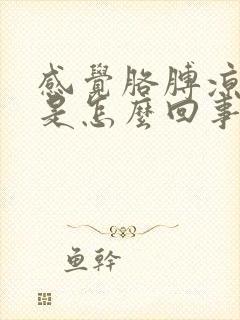 感覺胳膊涼
是怎麼回事
魚幹